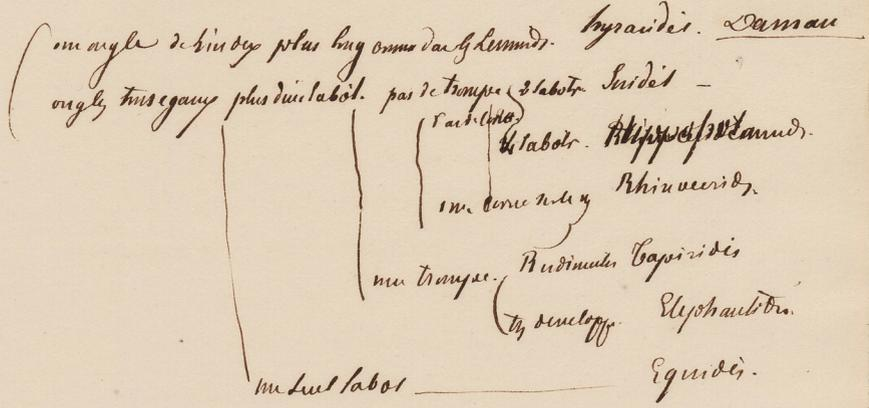 un ongle de plus long comme dans les Lemurids. hyracidés. Daman
ongles tous egaux plus d'un sabot. pas de trompe 2 sabots. Suidés —
pas de corne
4 sabots.
une corne sur le nez Rhinocerids.
une trompe. Rudimentre Tapiridés
très developpe. Elephantidés.
un seul sabot — Equidés.